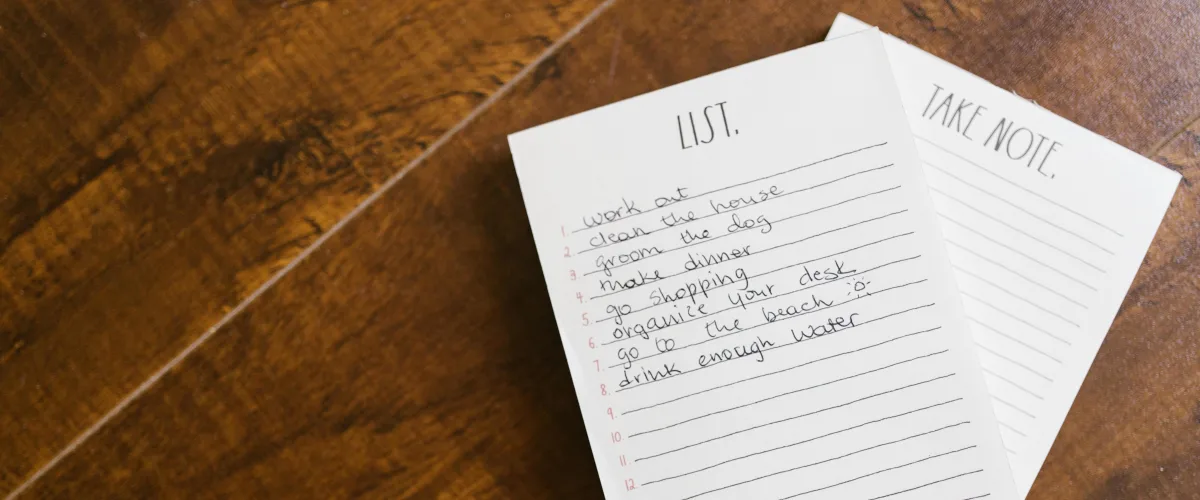 LIST.
1. work out
2. clean the house
3. groom the dog
4. make dinner
5. go shopping
6. organize your desk
7. go to the beach
8. drink enough water
9.
10.
11.
12
TAKE NOTE.